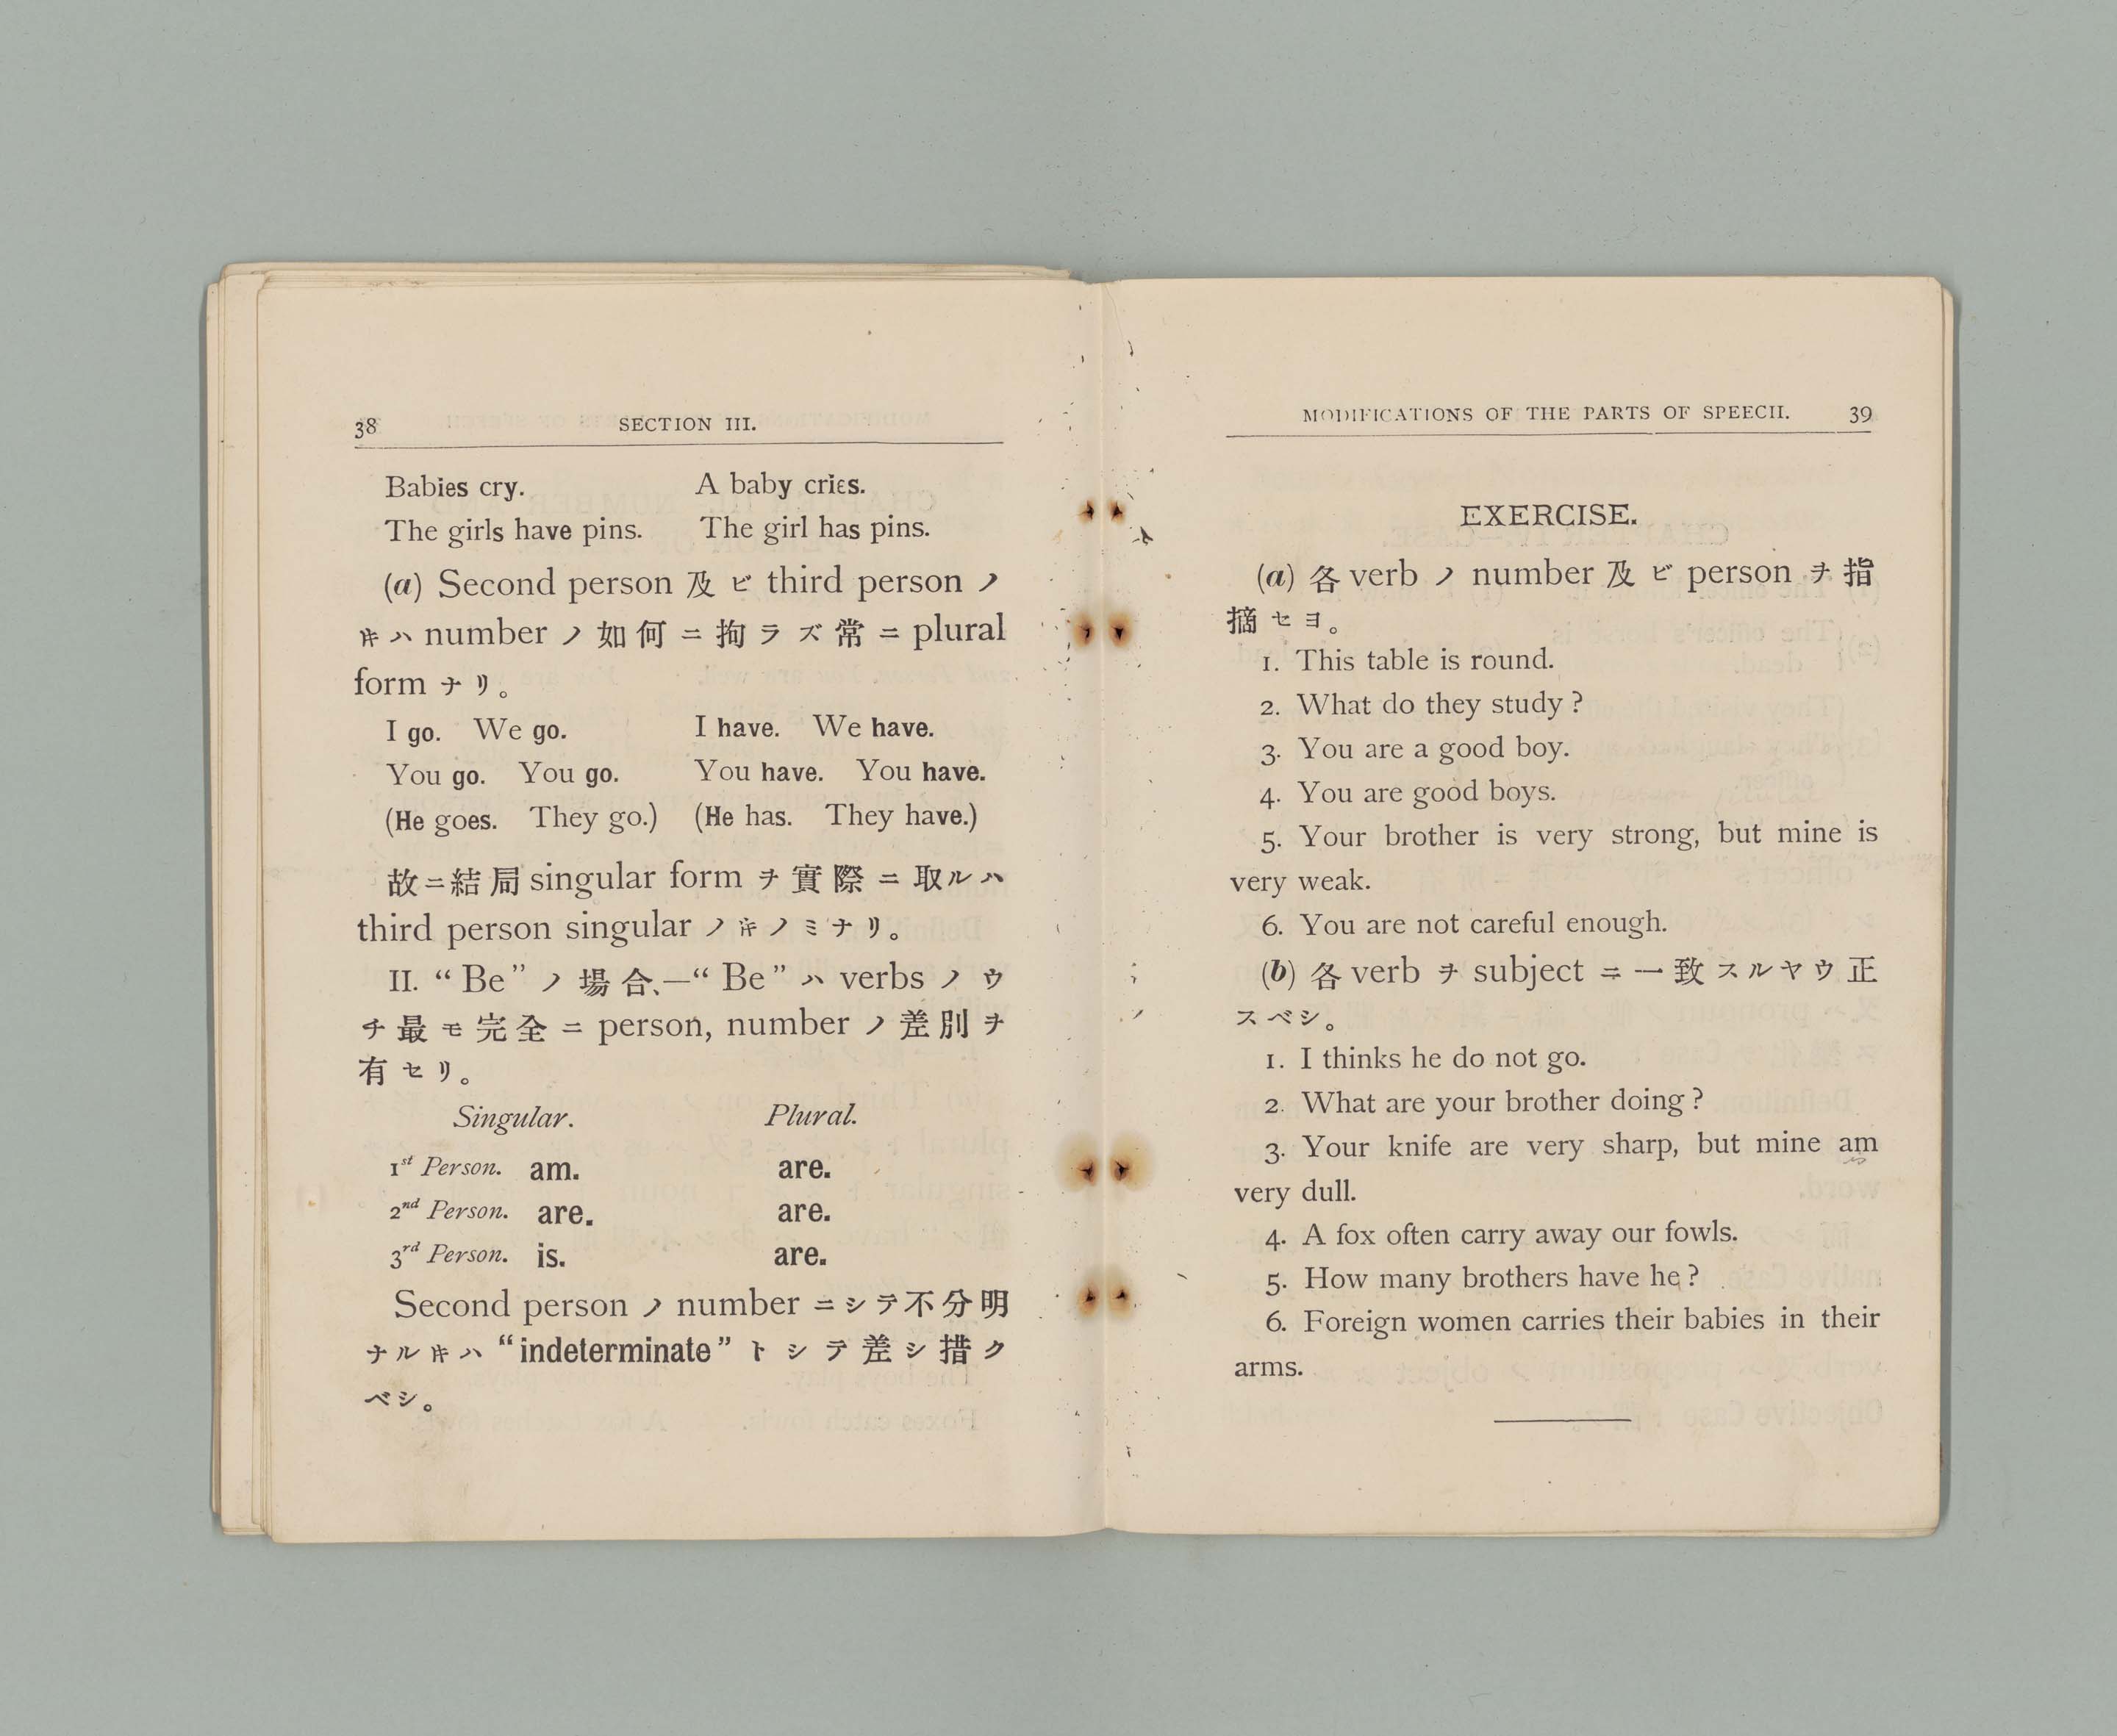 38 SECTION III.
Babies cry. A baby cries.
The girls have pins. The girl has pins.
(a) Second person 及ビ third person ノ
𪜈ハ number ノ如何ニ拘ラズ常ニ plural
form ナリ。
I go. We go. I have. We have.
You go. You go. You have. You have.
(He goes. They go.) (He has. They have.)
故ニ結局 singular form ヲ實際ニ取ルハ
third person singular ノ𪜈ノミナリ。
II. “Be” ノ場合、—“Be” ハ verbs ノウ
チ最モ完全ニ person, number ノ差別ヲ
有セリ。
Singular. Plural.
1st Person. am. are.
2nd Person. are. are.
3rd Person. is. are.
Second person ノ number ニシテ不分明
ナル𪜈ハ “indeterminate” トシテ差シ措ク
ベシ。
MODIFICATIONS OF THE PARTS OF SPEECH. 39
EXERCISE.
(a) 各 verb ノ number 及ビ person ヲ指
摘セヨ。
1. This table is round.
2. What do they study?
3. You are a good boy.
4. You are good boys.
5. Your brother is very strong, but mine is
very weak.
6. You are not careful enough.
(b) 各 verb ヲ subject ニ一致スルヤウ正
スベシ。
1. I thinks he do not go.
2. What are your brother doing?
3. Your knife are very sharp, but mine am
is
very dull.
4. A fox often carry away our fowls.
5. How many brothers have he?
6. Foreign women carries their babies in their
arms.